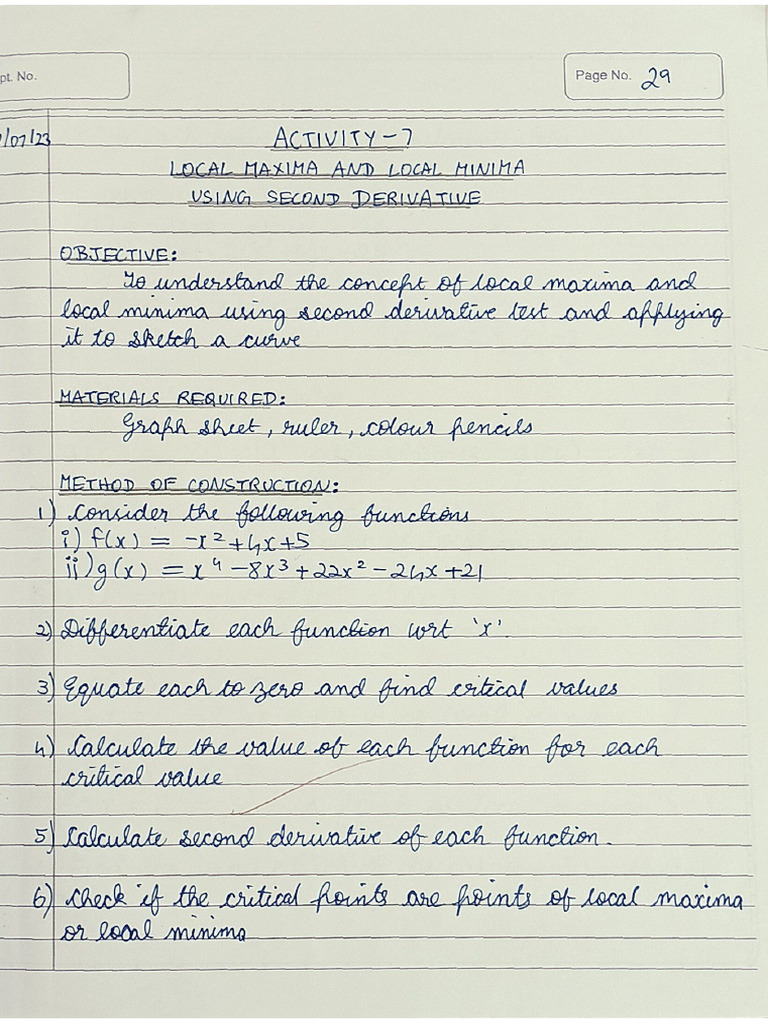 pt. No.
Page No. 29
/07/23
ACTIVITY-7
LOCAL MAXIMA AND LOCAL MINIMA
USING SECOND DERIVATIVE
OBJECTIVE:
To understand the concept of local maxima and
local minima using second derivative test and applying
it to sketch a curve
MATERIALS REQUIRED:
Graph sheet, ruler, colour pencils
METHOD OF CONSTRUCTION:
1) Consider the following functions
i) f(x) = -x² + 4x + 5
ii) g(x) = x⁴ - 8x³ + 22x² - 24x + 21
2) Differentiate each function wrt 'x'.
3) Equate each to zero and find critical values
4) Calculate the value of each function for each
critical value
5) Calculate second derivative of each function.
6) Check if the critical points are points of local maxima
or local minima